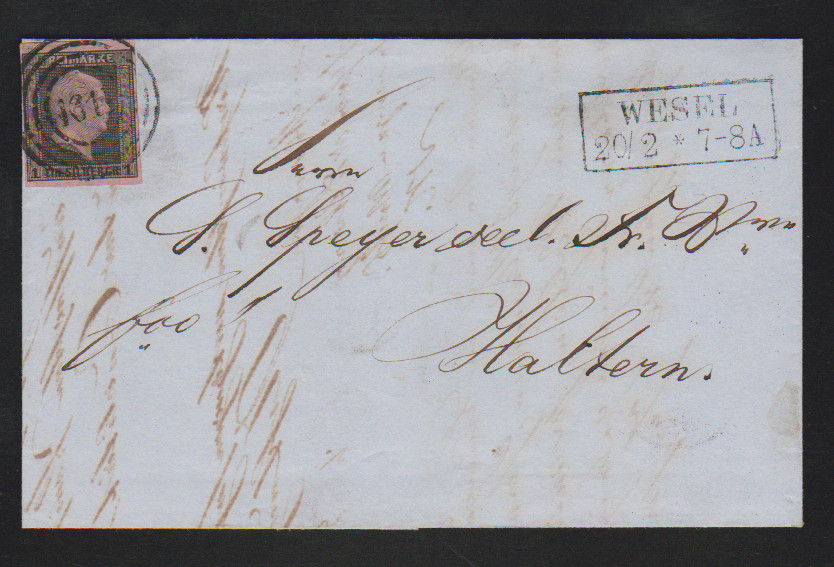 FREIMARKE
1631
1 EIN SILBERGR. 1
WESEL
20/2 * 7-8A
Herrn
S. Speyer seel. Fr. Wwe
fco
Haltern.